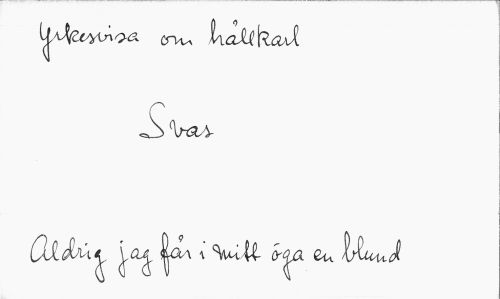 Yrkesvisa om hållkarl
Svas
Aldrig jag får i mitt öga en blund